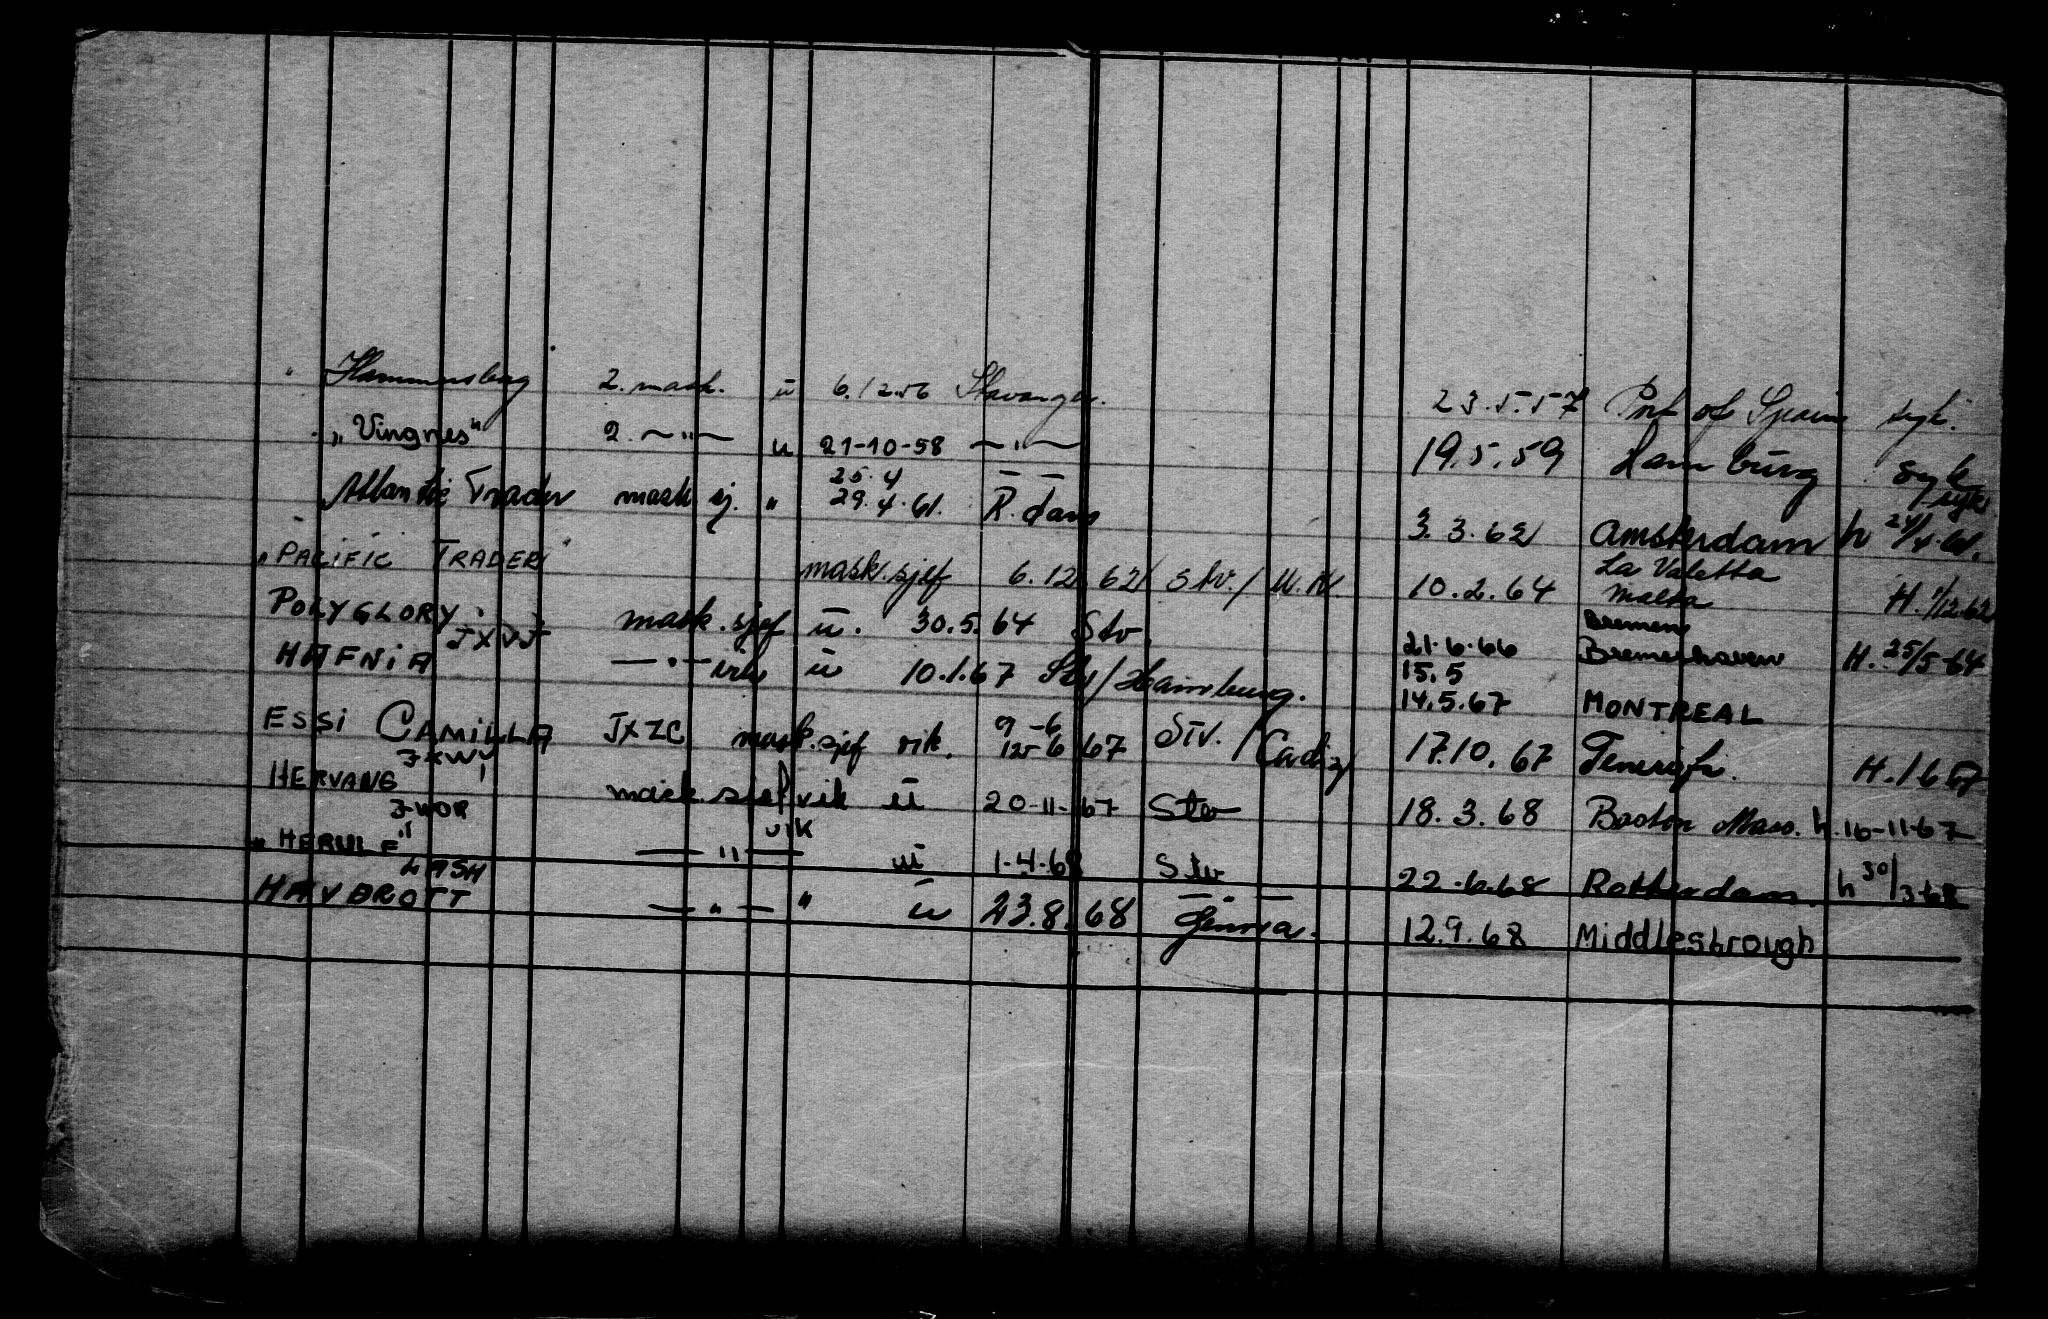 " Hammersborg 2. mask. ū 6.12.56 Stavanger. 23.5.57 Port of Spain syk.
"Vingnes" 2. —"— u 21-10-58 —"— 19.5.59 Hamburg syk
Atlantic Trader mask sj. " 25.4 29.4.61. R.dam 3.3.62 Amsterdam h syk
"PACIFIC TRADER" mask.sjef 6.12 62 Stv./ 10.2.64 La Valetta Malta H. 1/12.62
POLYGLORY JXVJ mask.sjef ū. 30.5.64 Stv. 21.6.66 Bremen Bremerhaven H. 25/5-64
HAFNIA —"— vik ū 10.1.67 Stv/Hamburg. 15.5 14.5.67 MONTREAL
ESSI CAMILLA JXZC mask.sjef vik. 9-6 12 6 67 STV./Cadiz 17.10.67 Teneriffe. H.1 6 67
HERVANG mask sjef vik ū 20-11-67 Stv 18.3.68 Boston Mass. h.16-11-67
"HERULF" —"— vik ū 1-4-68 Stv 22.6.68 Rotterdam. h 30/3-68
HAVBROTT LASH —"— " ū 23.8.68 Genova. 12.9.68 Middlesbrough